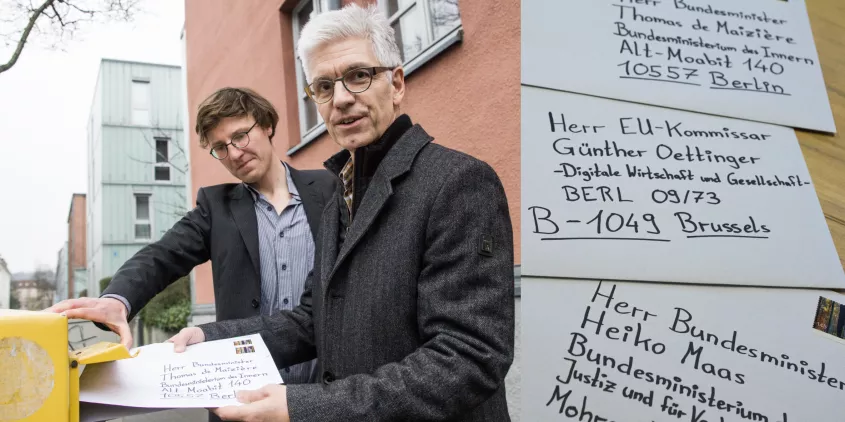 Herr Bundesminister
Thomas de Maizière
Bundesministerium des Innern
Alt-Moabit 140
10557 Berlin
Herr Bundesminister
Thomas de Maizière
Bundesministerium des Innern
Alt-Moabit 140
10557 Berlin
Herr EU-Kommissar
Günther Oettinger
-Digitale Wirtschaft und Gesellschaft-
BERL 09/73
B-1049 Brussels
Herr Bundesminister
Heiko Maas
Bundesministerium d
Justiz und für Ver
Mohr